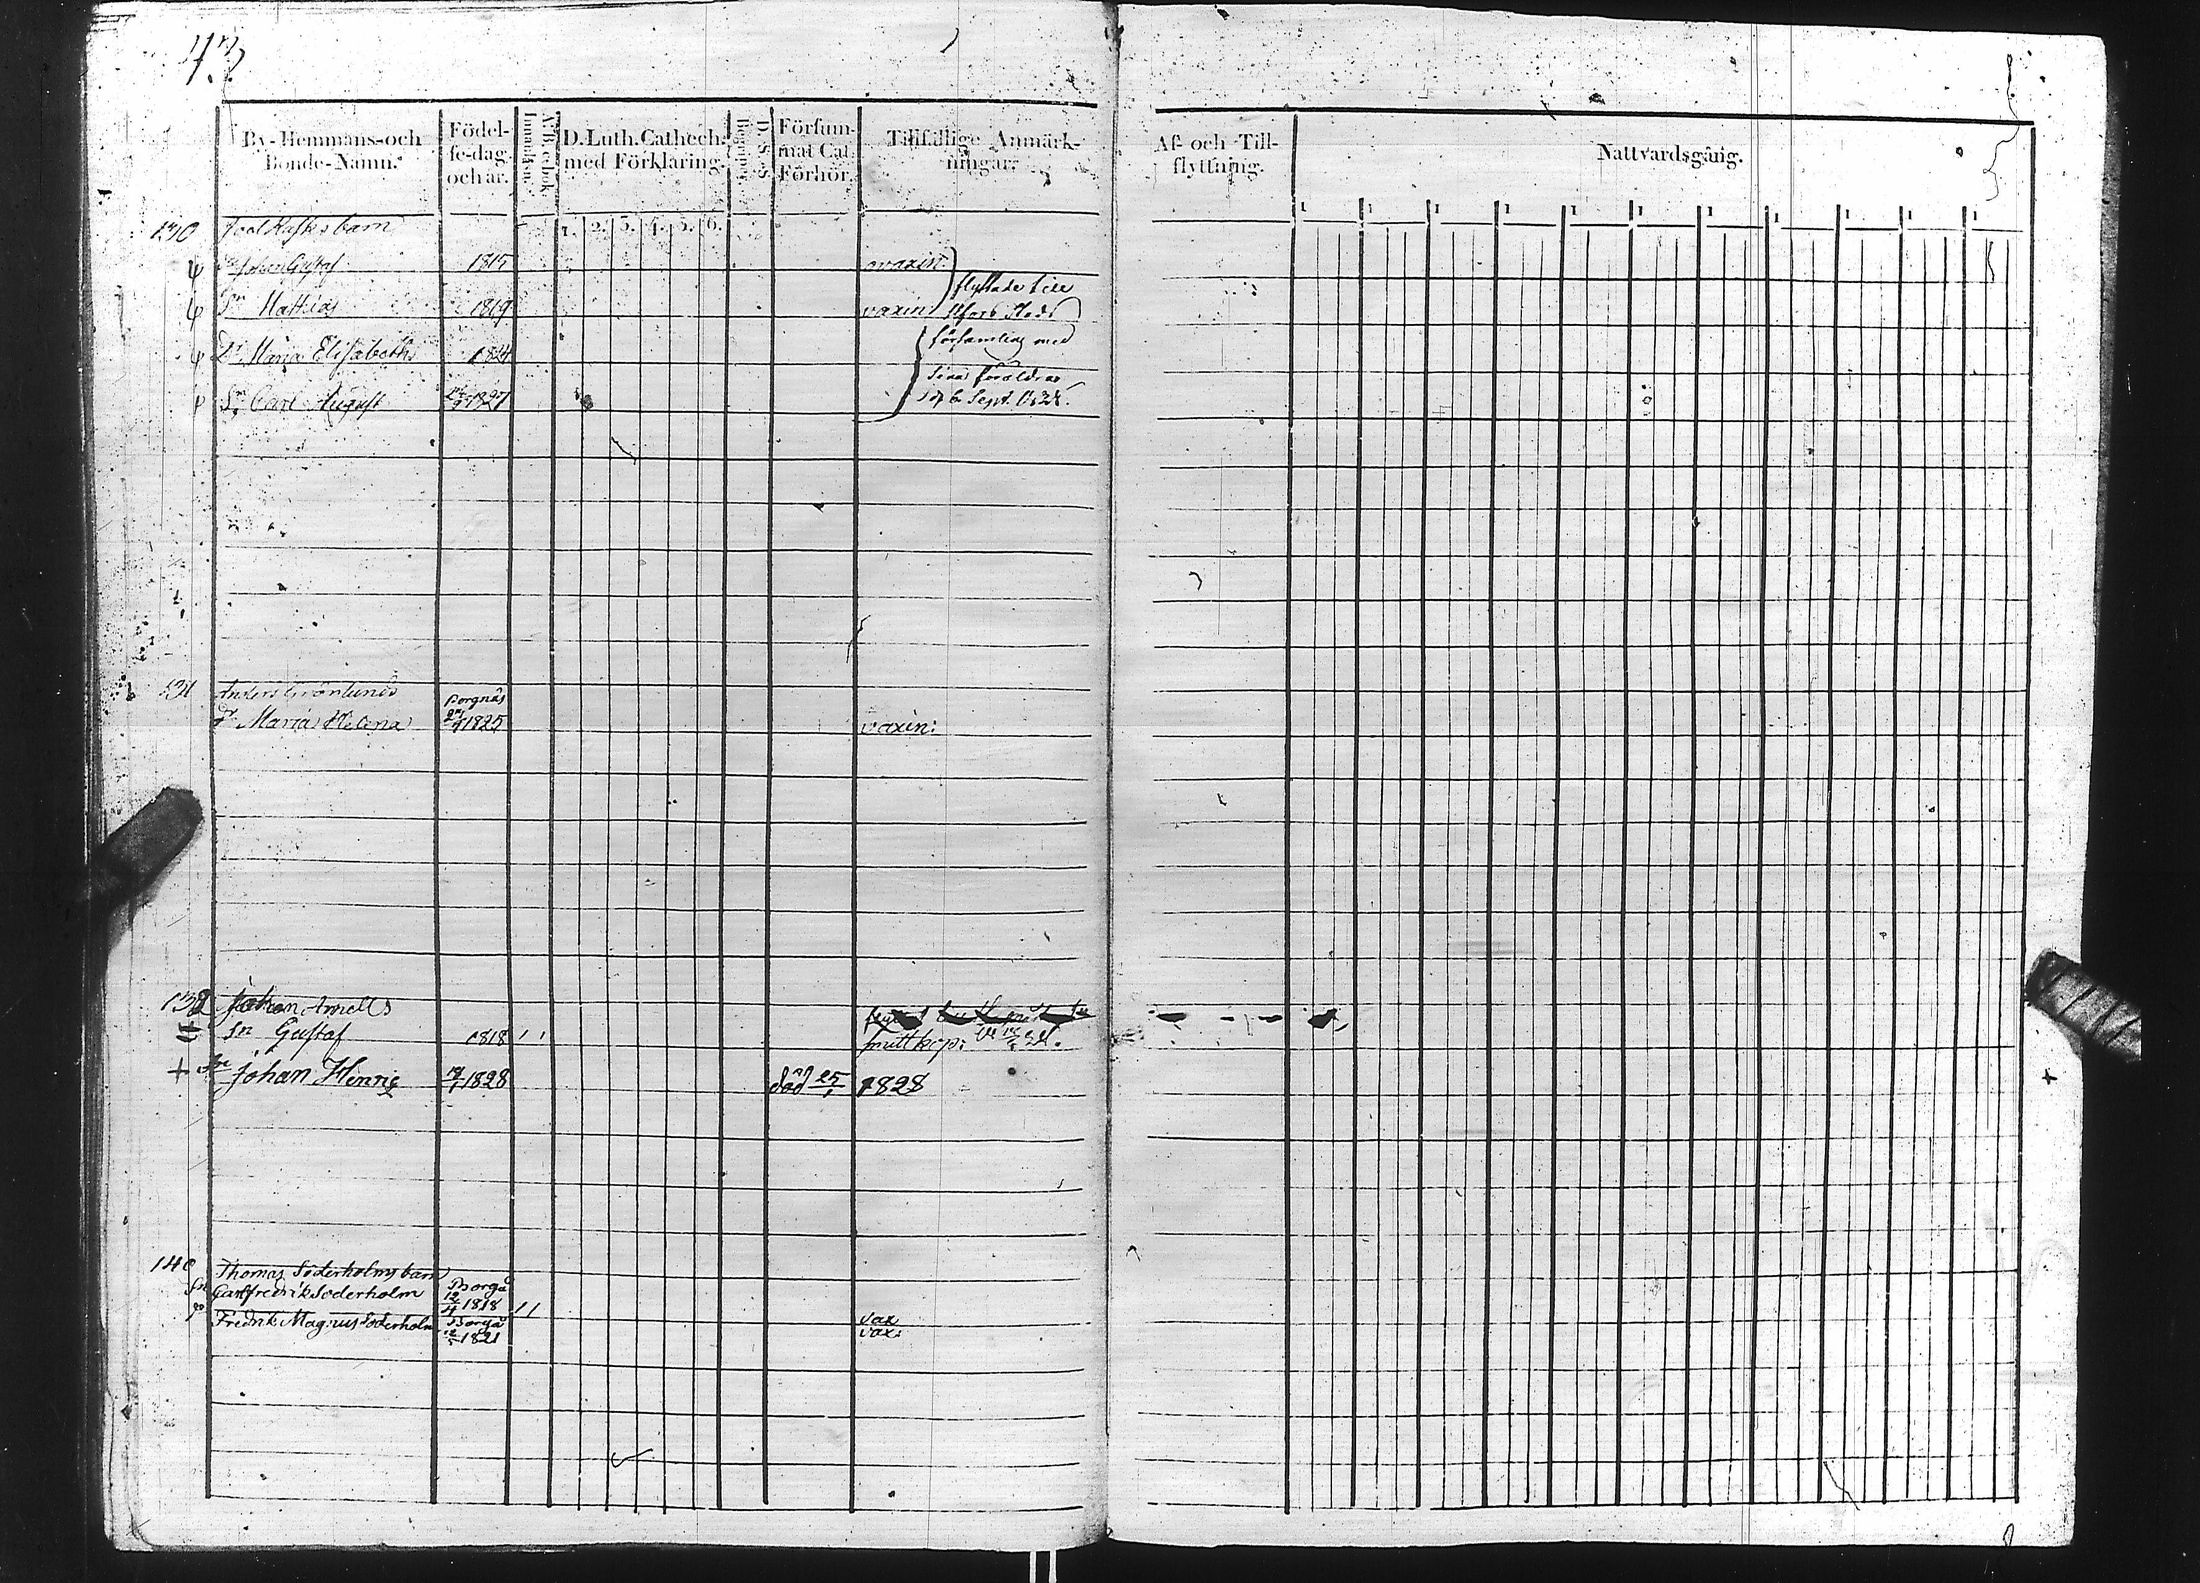 43.
By-Hemmans-och Bonde-Namn.
Födel-se-dag och år.
A.B.C. bok Innanläsn.
D. Luth. Cathech. med Förklaring.
1. 2. 3. 4. 5. 6.
D. S. S. Begrepp.
Försum-mat Cat. Förhör.
Tillfällige Anmärk-ningar.
Af- och Till-flyttning.
Nattvardsgång.
1 1 1 1 1 1 1 1 1 1 1
130 Joel Rasks barn
Sn Johan Gustaf 1815 ovaxin:
Sn Mattias 1819 vaxin
Dr Maria Elisabeth 1824
Sn Carl August 1827
flyttade till
församling med
sina föräldrar
d 6 Sept. 1828.
131 Anders Grönlunds
Dr Maria Helena Borgnäs 1825 vaxin:
138 Johan Amells
Sn Gustaf 1818 11
smittkop:
+ Sn Johan Henric 1828 död 25/1 1828
140 Thomas Söderholms barn
Sn Carl fredrik Söderholm Borgå 12/4 1818 11 vax
Fredrik Magnus Söderholm Borgå 1821 vax: